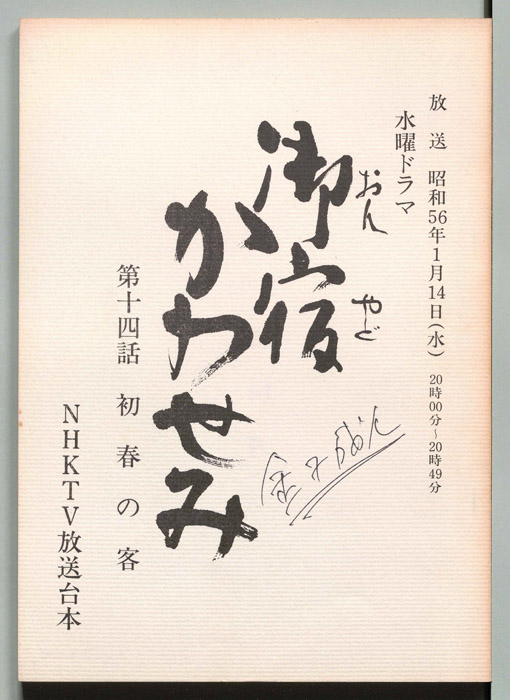 放送 昭和56年1月14日(水) 20時00分~20時49分
水曜ドラマ
おんやど
御宿
かわせみ
第十四話 初春の客
NHKTV放送台本